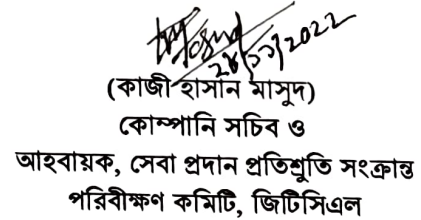 ২৪/১১/২০২২
(কাজী হাসান মাসুদ)
কোম্পানি সচিব ও
আহবায়ক, সেবা প্রদান প্রতিশ্রুতি সংক্রান্ত
পরিবীক্ষণ কমিটি, জিটিসিএল